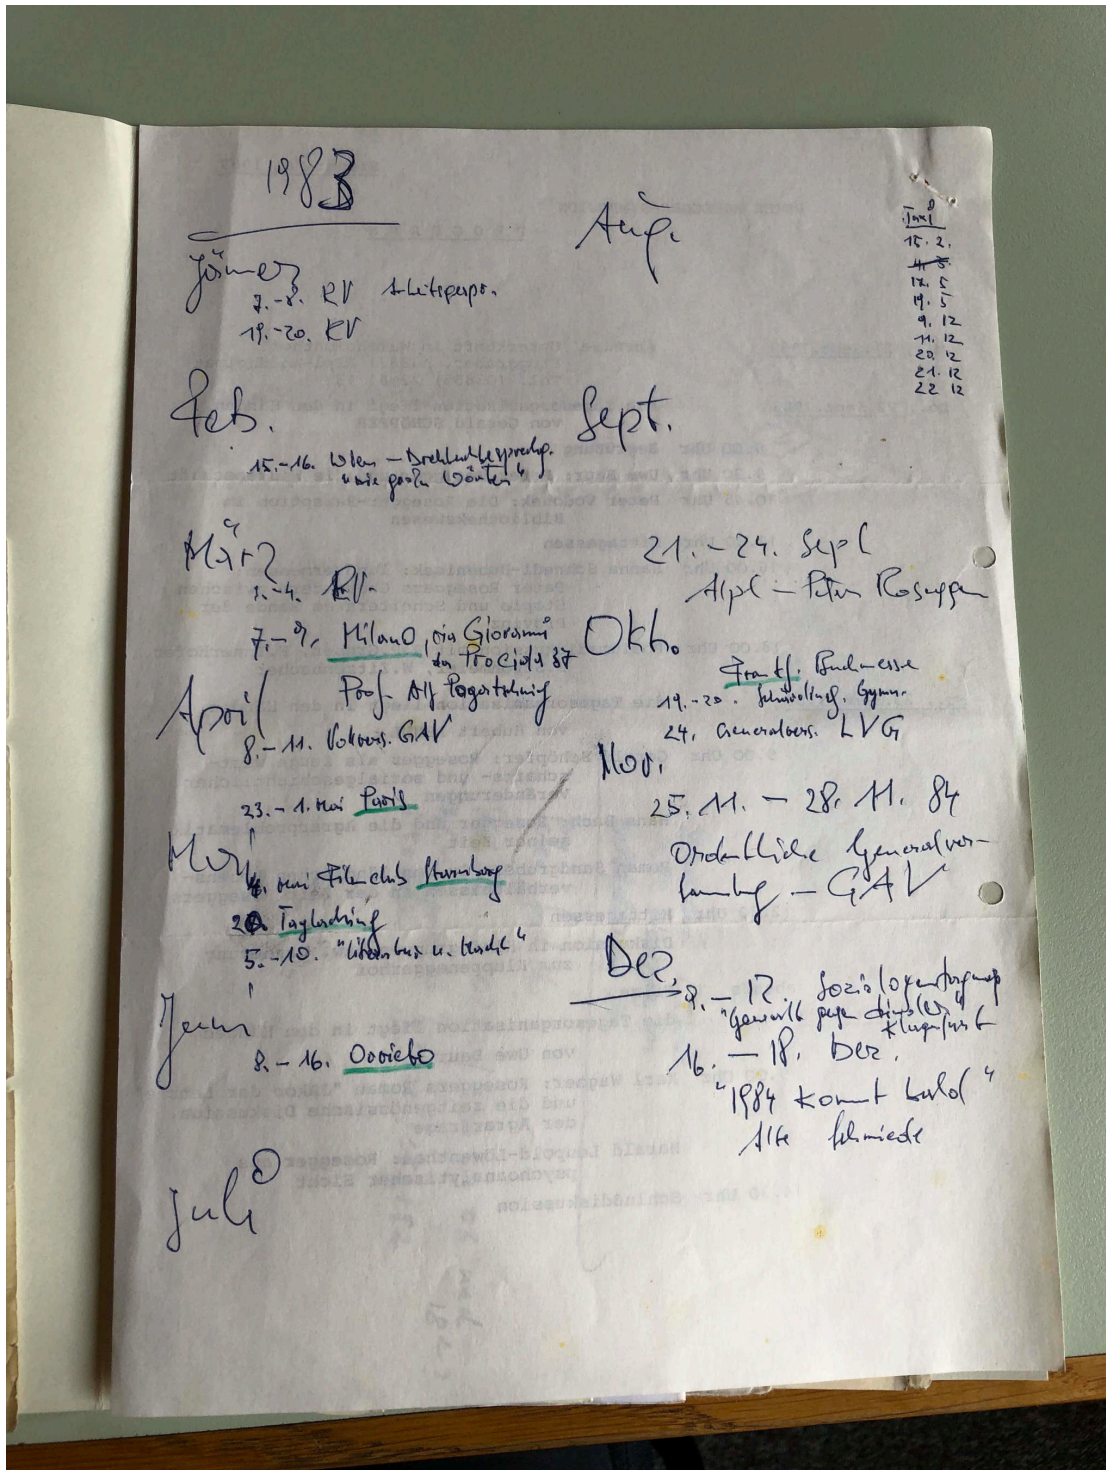 1983
Jänner
7.-8. RV Arbeitsgespr.
19.-20. RV
Feb.
15.-16. Wien – Drehbuchbesprechg.
"wie große Wörter"
März
1.-4. RV.
7.-9. Milano, via Giovanni
da Procida 37
Prof. Alf
April
8.-11. Vollvers. GAV
23.-1. Mai Paris
Mai
4. Mai Filmclub
5.-10. "Literatur u. Macht"
Juni
8.-16. Orvieto
Juli
Aug.
Sept.
21.-24. Sept
Alpl – Peter Rosegger
Okt.
Frankf. Buchmesse
19.-20. Gymn.
24. Generalvers. LVG
Nov.
25.11. – 28.11. 84
Ordentliche Generalver-
sammlg – GAV
Dez.
9. – 12. Soziologentagung
"Gewalt gegen Kinder"
Klagenfurt
16. – 18. Dez.
"1984 kommt bald"
Alte Schmiede
Taxi
15. 2.
4. 5.
17. 5
19. 5
9. 12
11. 12
20. 12
21. 12
22 12